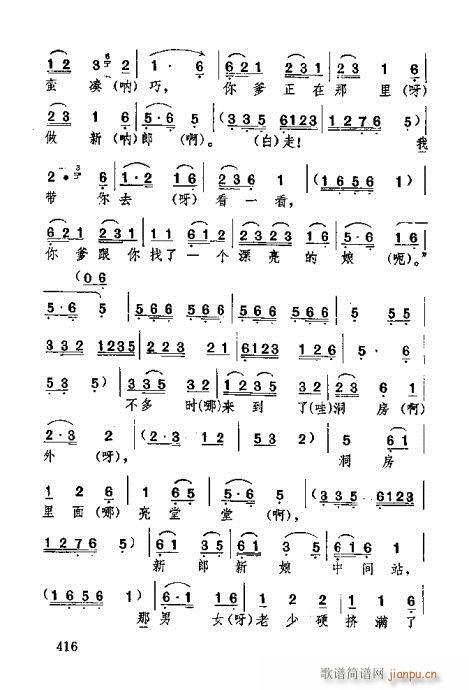 1 2 3 2 | 1 · 6 | 6 2 1 2 3 1 | 2 3 1 6 |
蛮 凑(呐)巧, 你爹正在那里(呀)
2 3 3 1 6 | 5 · 6 5 | (3 3 5 6123 | 1 2 7 6 5) |
做新(呐)郎(啊)。(白)走! 我
2 · 6 | 1 · 2 1 6 | 2 3 1 | (1 6 5 6 1) |
带 你去(呀)看一看,
6 2 1 2 3 1 | 1 1 6 1 2 | 2 3 2 3 1 6 | 5 · 6 1 6 |
你爹跟你找了一个漂亮的娘(呃)。”
(0 6
5 · 6 5 | 5 6 6 5 6 6 | 5 6 5 6 5 6 6 | 5 6 6 5 |
3 3 2 1235 | 2 2 3 2 1 | 6123 1 2 6 | 5 · 6 |
5 3 5) | 3 3 5 3 5 | 1 2 3 5 2 1 2 | 2 3 6 1 |
不多时(哪)来到了(哇)洞房(啊)
2 · 3 2 | (2 · 3 1 2 | 5 3 5 2) | 5 6 1 |
外(呀), 洞房
1 2 | 1 6 5 | 5 · 6 5 | (3 3 5 6123 |
里面(哪)亮堂堂(啊),
1 2 7 6 5) | 6 1 3 5 | 6 1 3 | 5 6 1 6 1 |
新郎新娘中间站,
(1 6 5 6 1) | 1 6 | 1 2 2 | 1 3 6 1 |
那男女(呀)老少硬挤满了
416
歌谱简谱网
jianpu.cn